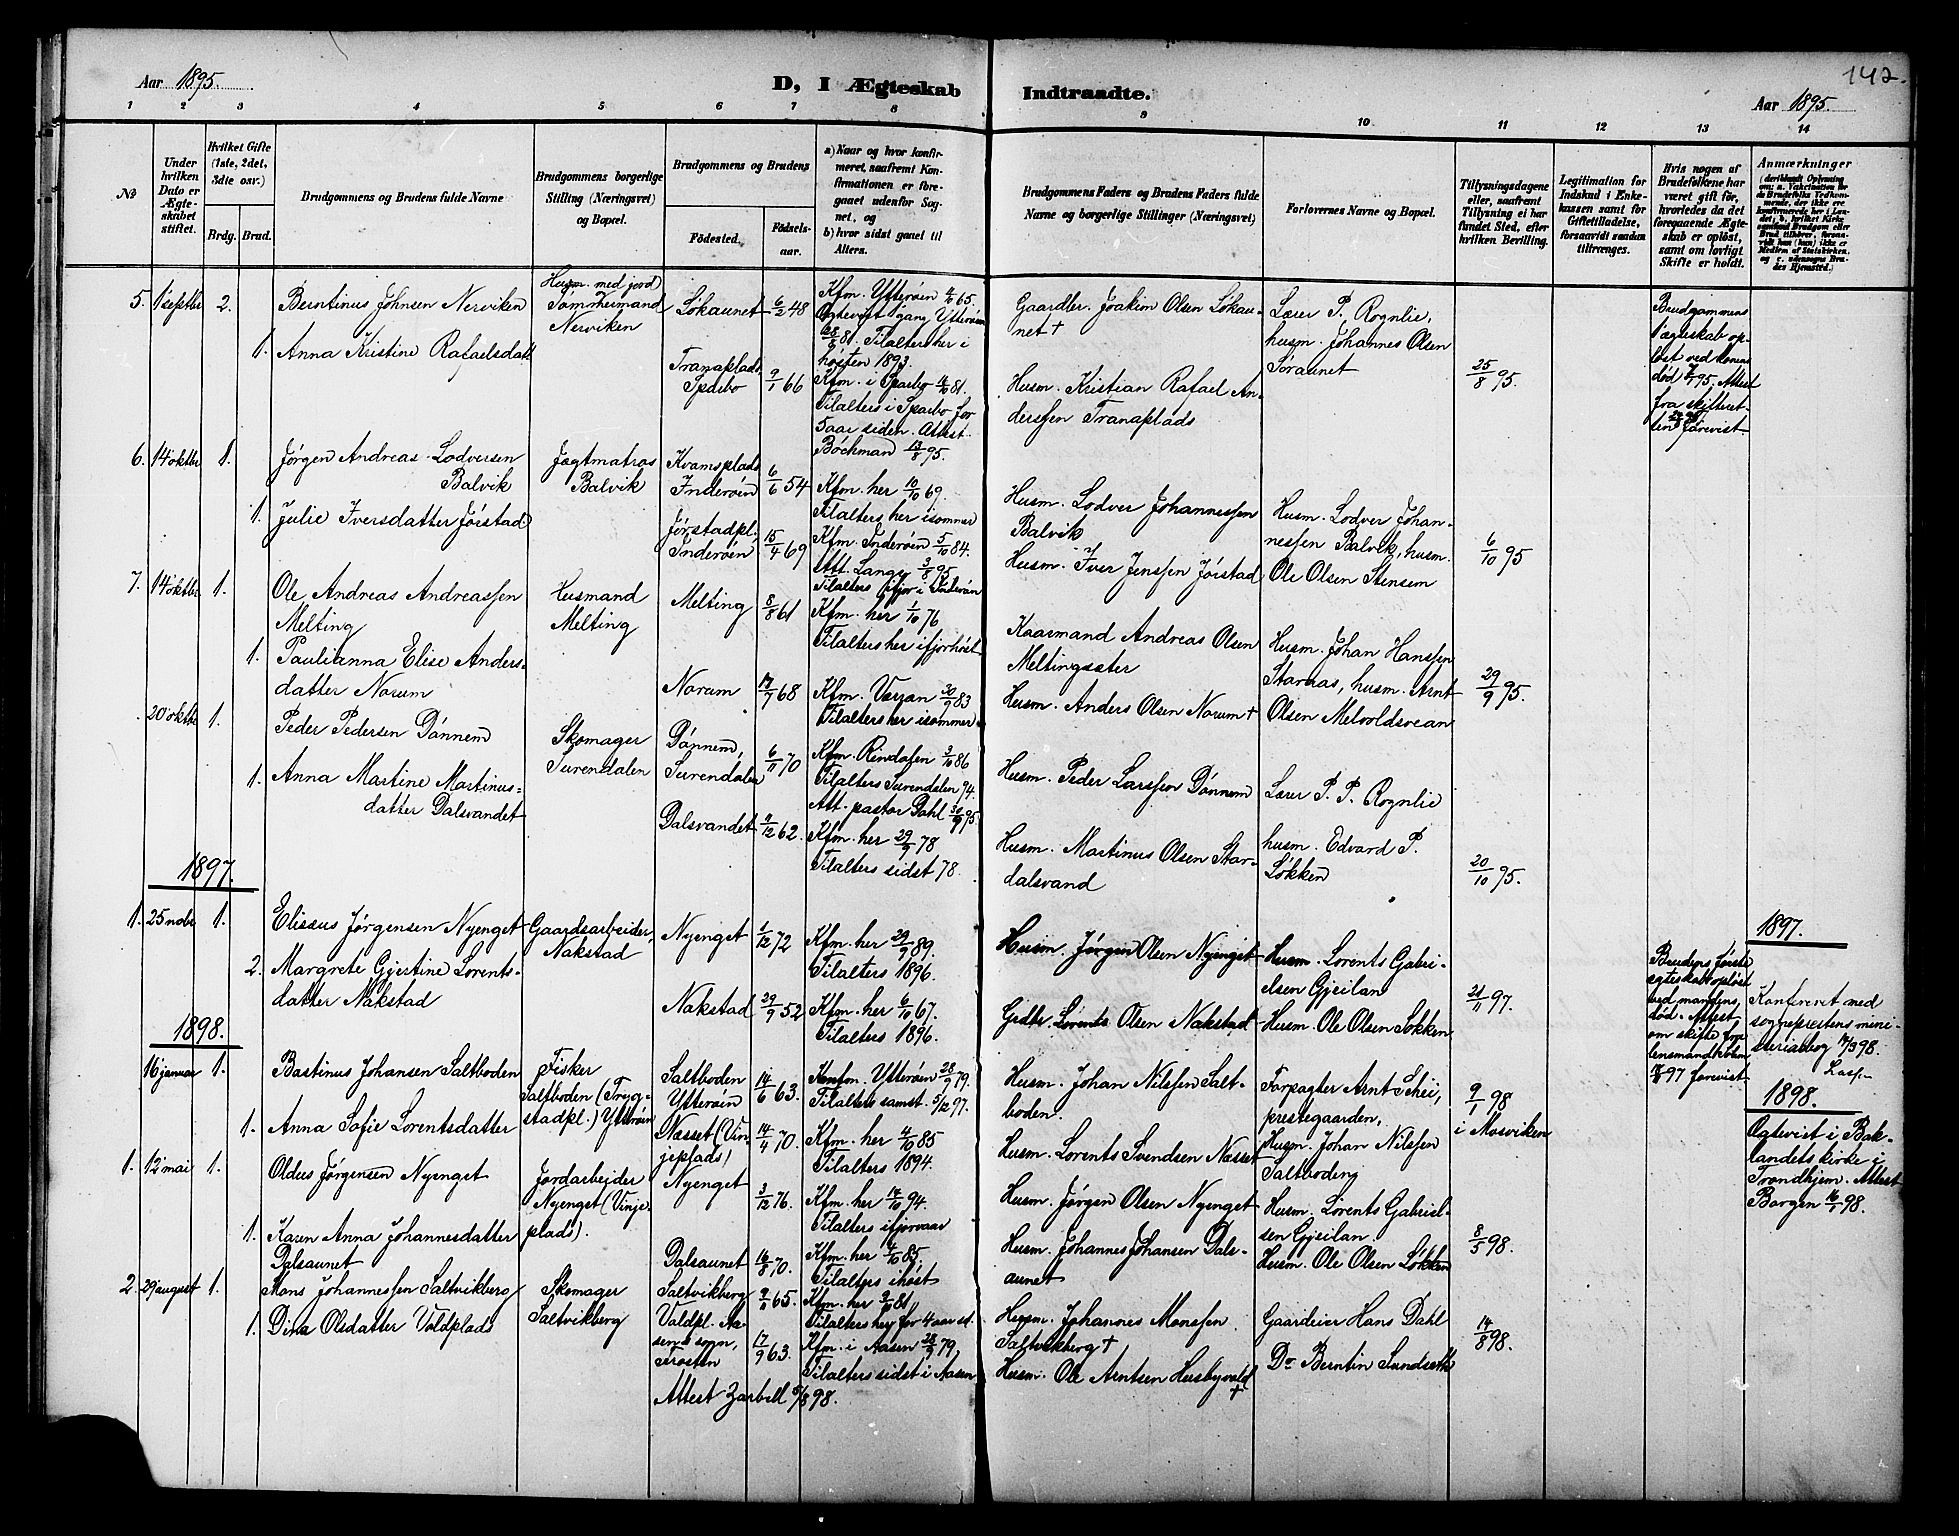 142.
Aar 1895.
D, I Ægteskab Indtraadte.
Aar 1895.
1 2 3 4 5 6 7 8 9 10 11 12 13 14
No
Under hvilken Dato er Ægteskabet stiftet.
Hvilket Gifte (1ste, 2det, 3die osv.)
Brdg. Brud.
Brudgommens og Brudens fulde Navne
Brudgommens borgerlige Stilling (Næringsvei) og Bopæl.
Brudgommens og Brudens
Födested.
Födselsaar.
a) Naar og hvor konfirmeret, saafremt Konfirmationen er foregaaet udenfor Sognet, og
b) hvor sidst gaaet til Alters.
Brudgommens Faders og Brudens Faders fulde Navne og borgerlige Stillinger (Næringsvei)
Forlovernes Navne og Bopæl.
Tillysningsdagene eller, saafremt Tillysning ei har fundet Sted, efter hvilken Bevilling.
Legitimation for Indskud i Enkekassen samt for Giftetilladelse, forsaavidt saadan tiltrænges.
Hvis nogen af Brudefolkene har været gift før, hvorledes da det foregaaende Ægteskab er opløst, samt om lovligt Skifte er holdt.
Anmærkninger
5. 1 septbr 2.
Berntinus Johnsen Nerviken
Husm. med jord
Tømmermand
Nerviken
Lökaunet 6/2 48
Kfm. Ytterøen 4/10 65.
Ogteviet 1 gang Ytterøen
28/8 81. Tilalters her i
høsten 1893.
Gaardbr. Joakim Olsen Lökaunet +
Lærer P. Rognlie,
husm. Johannes Olsen
Søraunet
25/8 95.
Brudgommens
1 ægteskab op-
løst ved konens
død 7/1 95. Attest
fra skifteret-
ten forevist.
1. Anna Kristine Rafaelsdatt
Tranaplads,
Sparbo 9/1 66
Kfm. i Sparbo 14/10 81.
Tilalters i Sparbo for
5 aar siden. Attest
Bøchman 13/8 95.
Husm. Kristian Rafael An-
derssen Tranaplads
6. 14 oktbr 1.
Jørgen Andreas Lodversen
Balvik
Jagtmatros
Balvik
Kvamsplads
Inderøen 6/6 54
Kfm. her 10/10 69.
Tilalters her isommer
Husm. Lodver Johannessen
Balvik
Husm. Lodver Johan-
nessen Balvik, husm.
Ole Olsen Stensem
6/10 95
1. Julie Iversdatter Jørstad
Jørstadpl.
Inderøen 15/4 69
Kfm. Inderøen 5/10 84.
Att. Lange 3/8 95
Tilalters ifjor i Inderøen
Husm. Iver Jenssen Jørstad
7. 14 oktbr 1.
Ole Andreas Andreassen
Melting
Husmand
Melting
Melting 8/8 61
Kfm. her 1/10 76
Tilalters her ifjorhøst
Kaarmand Andreas Olsen
Meltingsæter
Husm. Johan Hanssen
Starnas, husm. Arnt
Olsen Melvoldsvean
29/9 95.
1. Paulianna Elise Anders-
datter Norum
Norum 17/7 68
Kfm. Værran 30/9 83
Tilalters her isommer
Husm. Anders Olsen Norum +
20 oktbr 1.
Peder Pedersen Dønnem
Skomager
Surendalen
Dønnem,
Surendalen 6/11 70
Kfm. Rindalen 3/10 86
Tilalters Surendalen 94.
Att. pastor Dahl 30/9 95.
Husm. Peder Larssen Dønnem
Lærer P. P. Rognlie
husm. Edvard P.
Løkken
20/10 95.
1. Anna Martine Martinus-
datter Dalsvandet
Dalsvandet 9/12 62.
Kfm. her 29/9 78
Tilalters sidst 78.
Husm. Martinus Olsen Stor-
dalsvand
1897.
1. 25 nobr 1.
Elisæus Jørgensen Nyenget
Gaardsarbeider,
Nakstad
Nyenget 1/12 72
Kfm. her 29/9 89.
Tilalters 1896.
Husm. Jørgen Olsen Nyenget
Husm. Lorents Gabri-
elsen Gjeilan
Husm. Ole Olsen Løkken
21/11 97.
Brudens første
egteskab opløst
ved mandens
død. Attest
om skifte fra
lensmand
97 forevist
1897.
Konfereret med
sogneprestens mini-
sterialbog 17/3 98.
2. Margrete Gjertine Lorents-
datter Nakstad
Nakstad 29/9 52
Kfm. her 6/10 67.
Tilalters 1896.
Grdbr. Lorents Olsen Nakstad
1898.
16 januar 1.
Bastinus Johansen Saltboden
Fisker
Saltboden (Tryg-
stadpl.) Ytterøen
Saltboden
Ytterøen 14/6 63.
Konfm. Ytterøen 28/9 79.
Tilalters samst. 5/12 97.
Husm. Johan Nilssen Salt-
boden.
Forpagter Arnt Schei,
prestegaarden,
Husm. Johan Nilssen
Saltboden
9/1 98
i Mosviken
1898.
Ogteviet i Bak-
landets kirke i
Trondhjem. Attest
Borgen 16/1 98.
1. Anna Sofie Lorentsdatter
Næsset (Vin-
jeplads) 14/4 70.
Kfm. her 4/10 85
Tilalters 1894.
Husm. Lorents Svendsen Næsset
1. 12 mai 1.
Oldus Jørgensen Nyenget
Jordarbejder
Nyenget (Vinje-
plads).
Nyenget 3/12 76.
Kfm. her 14/10 94.
Tilalters ifjorvaar
Husm. Jørgen Olsen Nyenget
Husm. Lorents Gabriel-
sen Gjeilan.
Husm. Ole Olsen Løkken
8/5 98.
1. Karen Anna Johannesdatter
Dalsaunet
Dalsaunet 16/8 70.
Kfm. her 4/10 85,
Tilalters ihøst
Husm. Johannes Johansen Dals-
aunet
2. 29 august 1.
Mons Johannessen Saltvikberg
Skomager
Saltvikberg
Saltvikberg 65.
Kfm. her 2/10 81.
Tilalters her for 4 aar sd.
Husm. Johannes Monssen
Saltvikberg +
Gaardeier Hans Dahl
Do. Berntin Sundseth
14/8 98.
1. Dina Olsdatter Voldplads
Voldpl. Aa-
sens sogn,
Frosten 17/9 63.
Kfm. i Aasen 28/9 79,
Tilalters sidst i Aasen
Attest Zarbell 5/8 98.
Husm. Ole Arntsen Husbyvald +